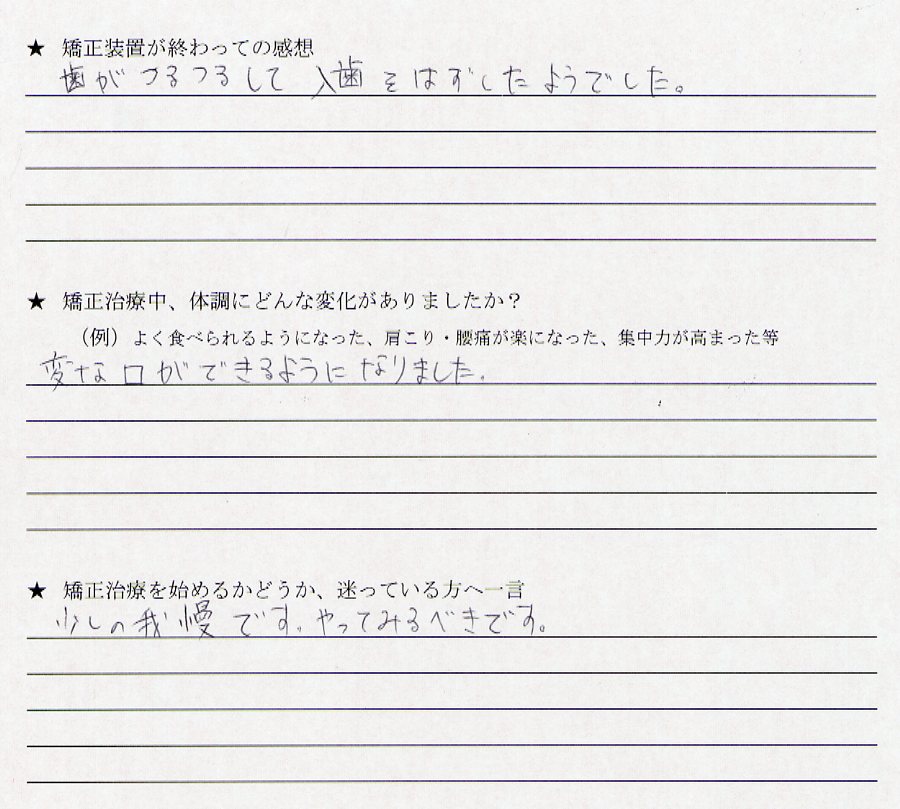 ★ 矯正装置が終わっての感想
歯がつるつるして入歯をはずしたようでした。
★ 矯正治療中、体調にどんな変化がありましたか？
（例）よく食べられるようになった、肩こり・腰痛が楽になった、集中力が高まった等
変な口ができるようになりました.
★ 矯正治療を始めるかどうか、迷っている方へ一言
少しの我慢です.やってみるべきです。